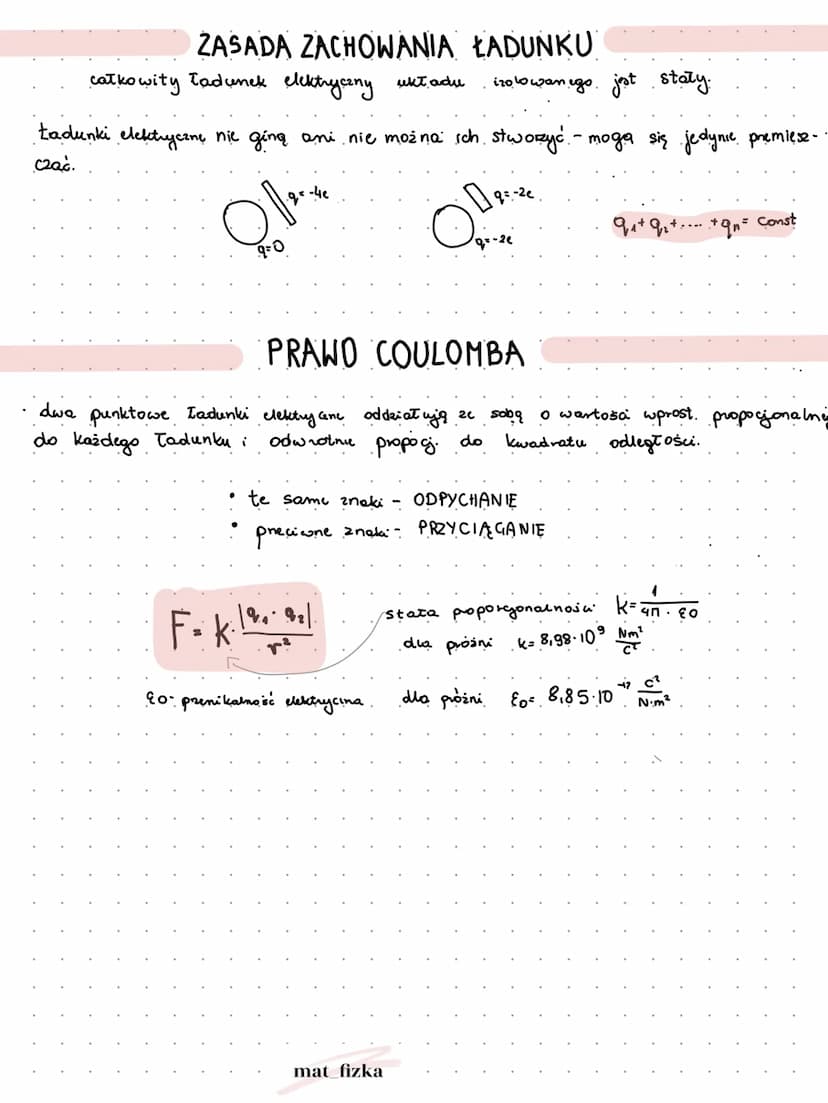 ZASADA ZACHOWANIA ŁADUNKU
całkowity ładunek elektryczny układu izolowanego jest stały.
Ładunki elektryczne nie giną ani nie można ich stworzyć – mogą się jedynie przemiesz-
czać.
q=-4e
q=0
q=-2e
q=-2e
q₁+q₂+....+qₙ= const
PRAWO COULOMBA
· dwa punktowe ładunki elektryczne oddziałują ze sobą o wartości wprost. proporcjonalnej
do każdego ładunku i odwrotnie proporcj. do kwadratu odległości.
• te same znaki – ODPYCHANIE
• przeciwne znaki – PRZYCIĄGANIE
F = k·|q₁·q₂|/r²
stała proporcjonalności k=1/4π·ε0
dla próżni k= 8,98·10⁹ Nm²/C²
ε0- przenikalność elektryczna dla próżni ε0= 8,85·10⁻¹² C²/N·m²
mat_fizka